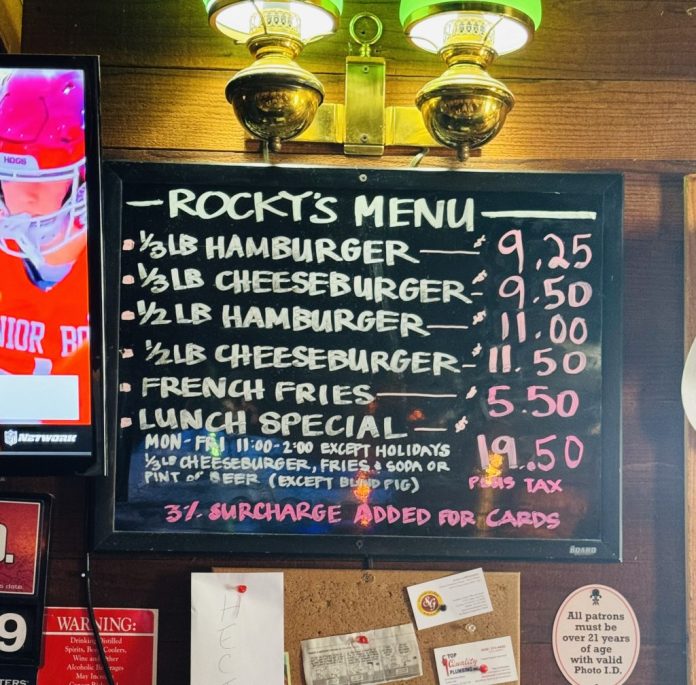 HOGS
NIOR BO
NFL NETWORK
ROCKY'S MENU
1/3 LB HAMBURGER $ 9.25
1/3 LB CHEESEBURGER $ 9.50
1/2 LB HAMBURGER $ 11.00
1/2 LB CHEESEBURGER $ 11.50
FRENCH FRIES $ 5.50
LUNCH SPECIAL $ 19.50
MON-FRI 11:00-2:00 EXCEPT HOLIDAYS
1/3 LB CHEESEBURGER, FRIES & SODA OR
PINT OF BEER (EXCEPT BLIND PIG)
PLUS TAX
3% SURCHARGE ADDED FOR CARDS
BOARD
date.
9
WARNING:
Drinking Distilled
Spirits, Beer, Coolers,
Wine and Other
Alcoholic Beverages
May Increase
TOP
Quality
PLUMBING
All patrons
must be
over 21 years
of age
with valid
Photo I.D.